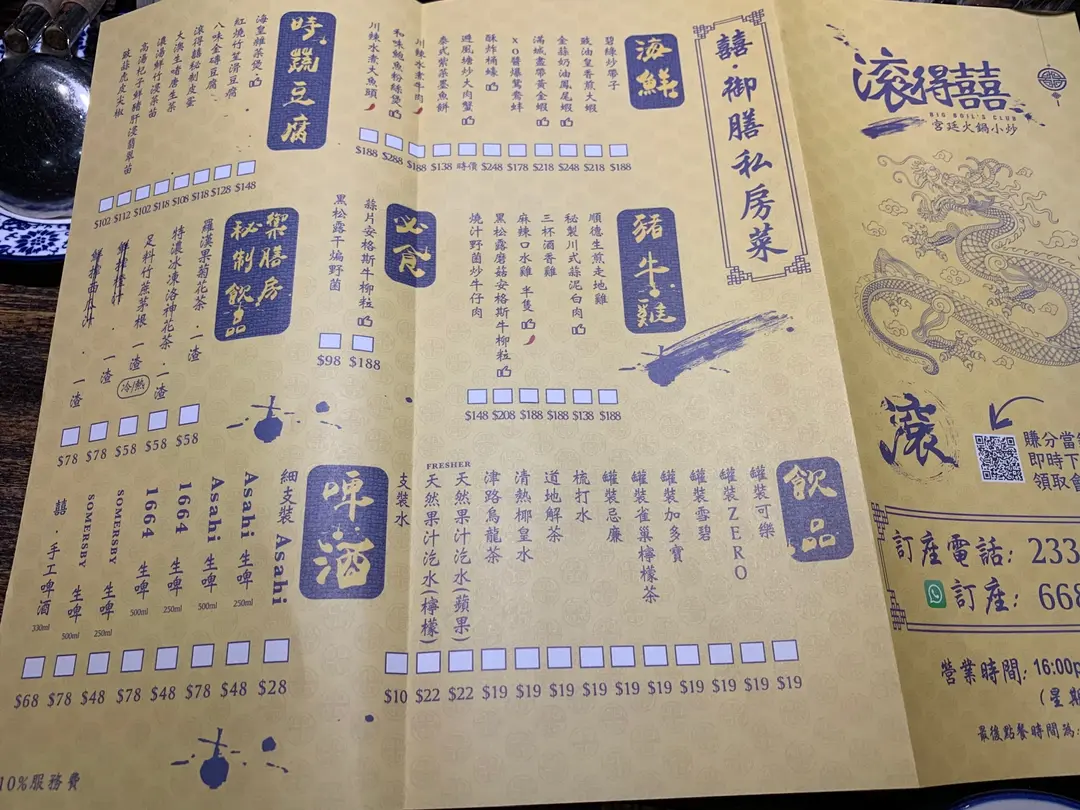 滾得囍
BIG BOIL'S CLUB
宮廷火鍋小炒
滾
賺分當
即時下
領取會
訂座電話: 233
訂座: 668
營業時間: 16:00p
(星期
最後點餐時間為:
囍·御膳私房菜
海鮮
碧綠炒帶子 $188
豉油皇香煎大蝦 $218
金蒜奶油鳳尾蝦 $248
滿城盡帶黃金蝦 $218
XO醬爆鴛鴦蚌 $178
酥炸桶蠔 $248
避風塘炒大肉蟹 時價
泰式紫菜墨魚餅 $138
川辣水煮牛肉 $188
和味鮑魚粉絲煲 $288
川辣水煮大魚頭 $188
豬·牛·雞
順德生煎走地雞 $188
秘製川式蒜泥白肉 $138
三杯酒香雞 $188
麻辣口水雞 半隻 $188
黑松露蘑菇安格斯牛柳粒 $208
燒汁野菌炒牛仔肉 $148
必食
蒜片安格斯牛柳粒 $188
黑松露干煸野菌 $98
時蔬豆腐
海皇雜菜煲 $148
紅燒竹笙滑豆腐 $128
八味金磚豆腐 $118
滾得囍秘制皮蛋 $118
大澳生啫唐生菜 $108
濃湯鮮竹浸菜苗 $118
高湯杞子鮮豬肝浸翡翠苗 $102
豉蒜虎皮尖椒 $112
$102
禦膳房秘制飲品
羅漢果菊花茶·一渣 $58
特濃冰凍洛神花茶·一渣 $58
足料竹蔗茅根 一渣 冷/熱 $58
一渣 $78
一渣 $78
飲品
罐裝可樂 $19
罐裝ZERO $19
罐裝雪碧 $19
罐裝加多寶 $19
罐裝雀巢檸檬茶 $19
罐裝忌廉 $19
梳打水 $19
道地解茶 $19
清熱椰皇水 $19
津路烏龍茶 $19
FRESHER
天然果汁汽水(蘋果) $22
天然果汁汽水(檸檬) $22
支裝水 $10
啤酒
細支裝 Asahi $28
Asahi 生啤 250ml $48
Asahi 生啤 500ml $78
1664 生啤 250ml $48
1664 生啤 500ml $78
SOMERSBY 生啤 250ml $48
SOMERSBY 生啤 500ml $78
囍·手工啤酒 330ml $68
10%服務費